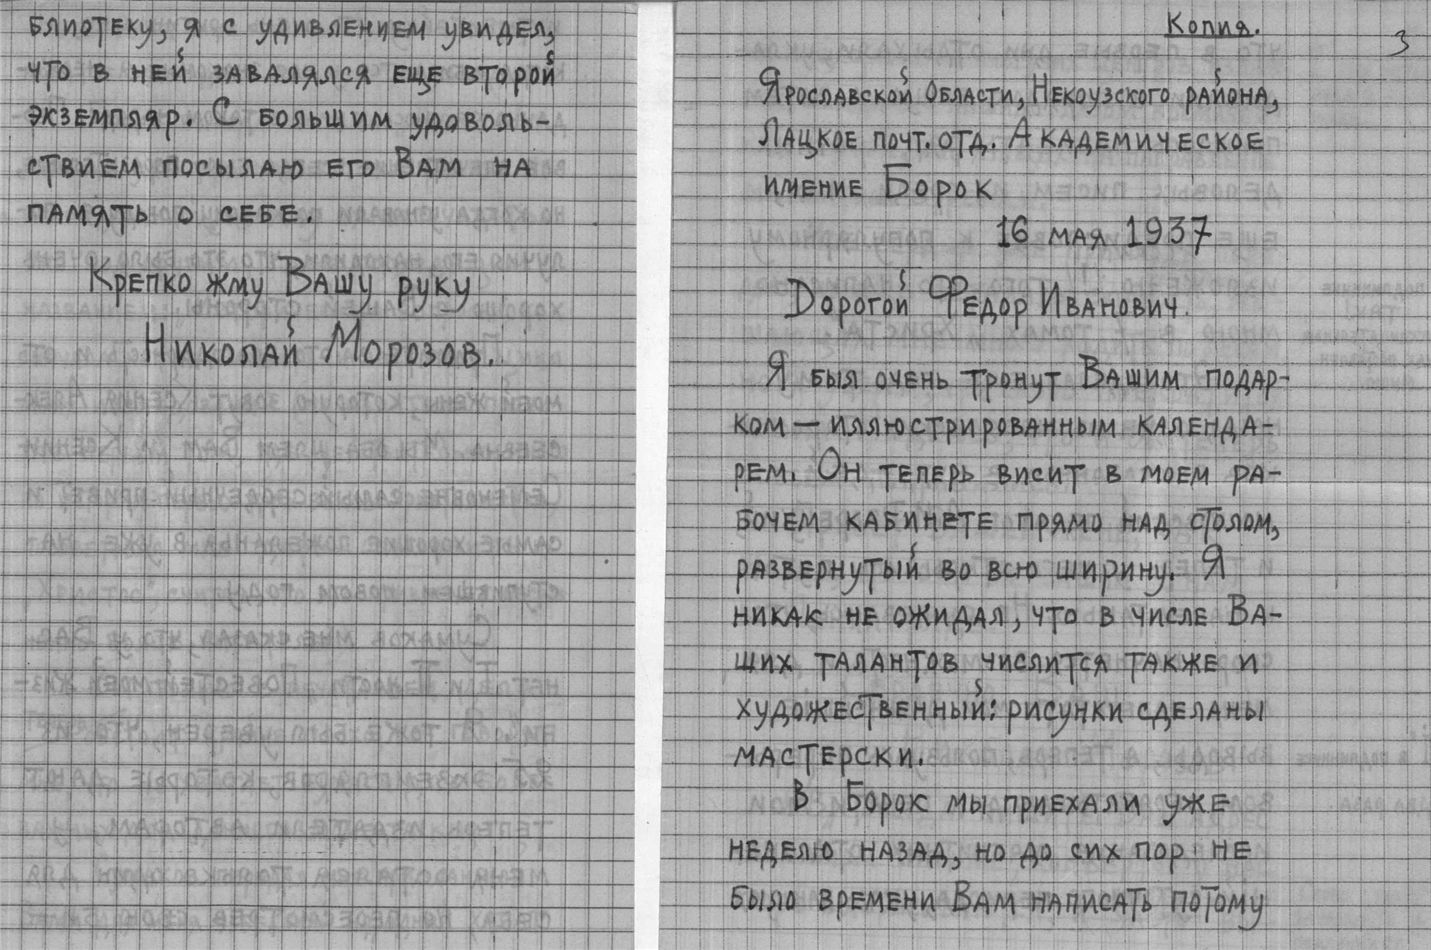 блиотеку, я с удивлением увидел,
что в ней завалялся еще второй
экземпляр. С большим удоволь-
ствием посылаю его Вам на
память о себе.
Крепко жму Вашу руку
Николай Морозов.
Копия.
3
Ярославской области, Некоузского района,
Лацкое почт. отд. Академическое
имение Борок
16 мая 1937
Дорогой Федор Иванович.
Я был очень тронут Вашим подар-
ком — иллюстрированным календа-
рем. Он теперь висит в моем ра-
бочем кабинете прямо над столом,
развернутый во всю ширину. Я
никак не ожидал, что в числе Ва-
ших талантов числится также и
художественный: рисунки сделаны
мастерски.
В Борок мы приехали уже
неделю назад, но до сих пор не
было времени Вам написать потому